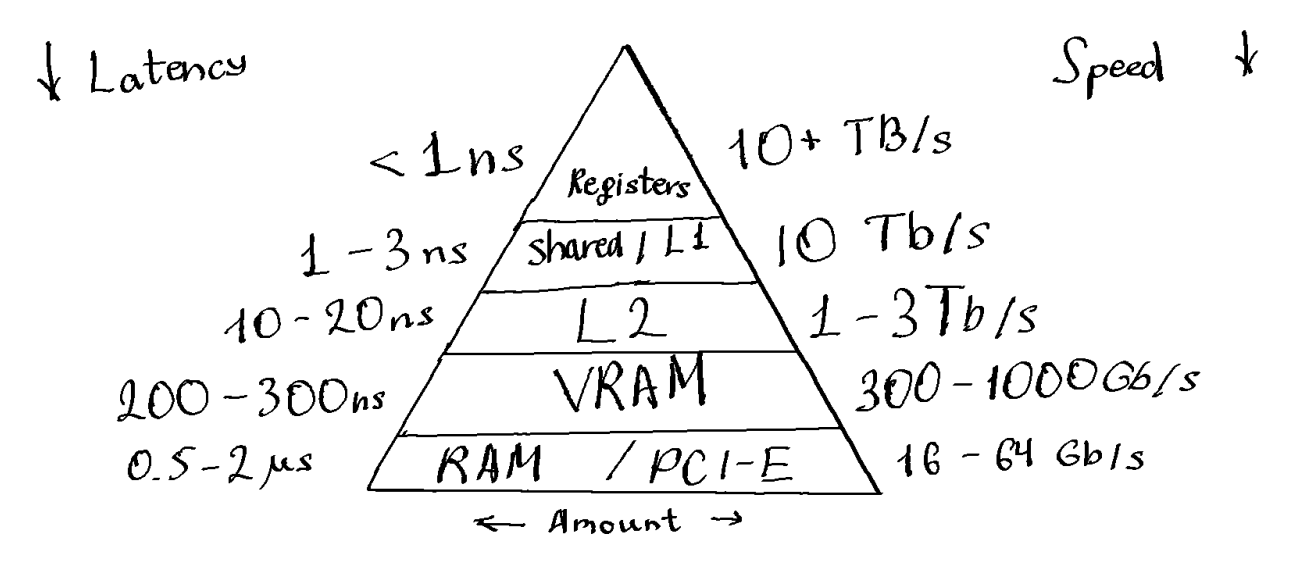 ↓ Latency Speed ↓
< 1ns Registers 10+ TB/s
1 - 3ns Shared / L1 10 Tb/s
10 - 20ns L2 1 - 3Tb/s
200 - 300ns VRAM 300 - 1000Gb/s
0.5 - 2 µs RAM / PCI-E 16 - 64 Gb/s
← Amount →